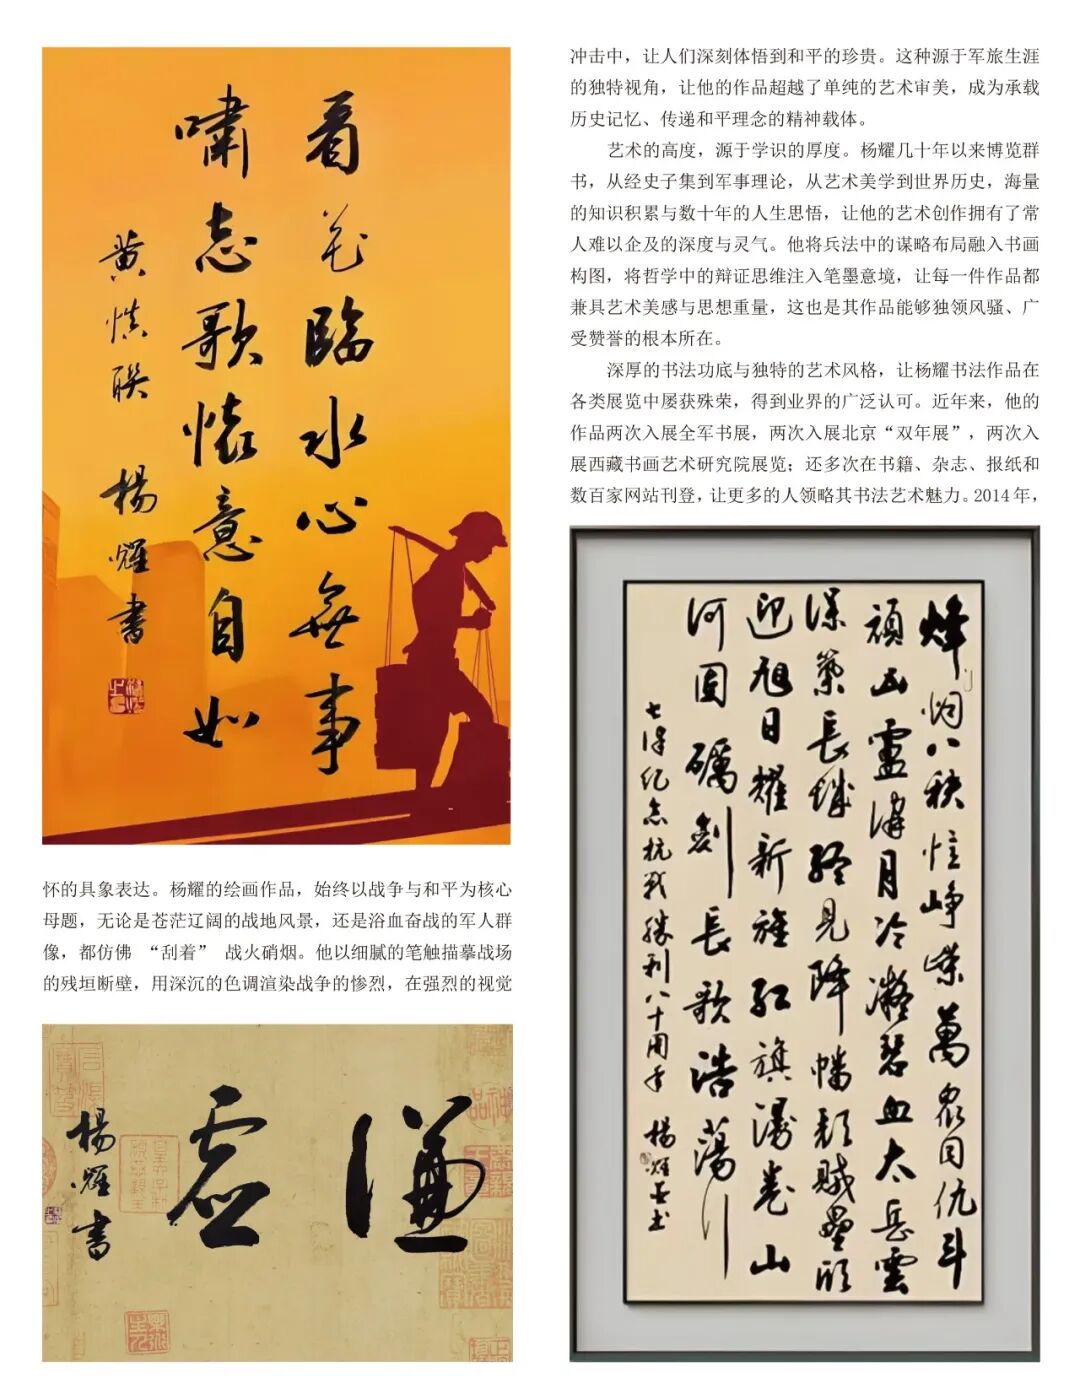 看花臨水心無事
嘯志歌懷意自如
黄慎聯 楊耀書
怀的具象表达。杨耀的绘画作品，始终以战争与和平为核心
母题，无论是苍茫辽阔的战地风景，还是浴血奋战的军人群
像，都仿佛 “刮着” 战火硝烟。他以细腻的笔触描摹战场
的残垣断壁，用深沉的色调渲染战争的惨烈，在强烈的视觉
謙虚
楊耀書
冲击中，让人们深刻体悟到和平的珍贵。这种源于军旅生涯
的独特视角，让他的作品超越了单纯的艺术审美，成为承载
历史记忆、传递和平理念的精神载体。
艺术的高度，源于学识的厚度。杨耀几十年以来博览群
书，从经史子集到军事理论，从艺术美学到世界历史，海量
的知识积累与数十年的人生思悟，让他的艺术创作拥有了常
人难以企及的深度与灵气。他将兵法中的谋略布局融入书画
构图，将哲学中的辩证思维注入笔墨意境，让每一件作品都
兼具艺术美感与思想重量，这也是其作品能够独领风骚、广
受赞誉的根本所在。
深厚的书法功底与独特的艺术风格，让杨耀书法作品在
各类展览中屡获殊荣，得到业界的广泛认可。近年来，他的
作品两次入展全军书展，两次入展北京“双年展”，两次入
展西藏书画艺术研究院展览；还多次在书籍、杂志、报纸和
数百家网站刊登，让更多的人领略其书法艺术魅力。2014年，
烽烟八秩忆峥嵘萬眾同仇斗
頑凶盧溝月冷凝碧血太岳雲
深築長城終見降幡頹賊壘欣
迎旭日耀新旌紅旗漫卷山
河固礪劍長歌浩蕩
七律纪念抗战胜利八十周年 楊耀并书